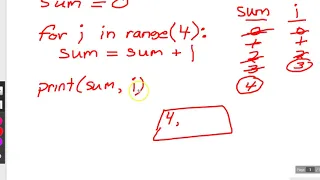 sum = 0
sum i
for i in range(4):
0 0
sum = sum + 1
1 1
2 2
print(sum, i)
3 3
4
4,